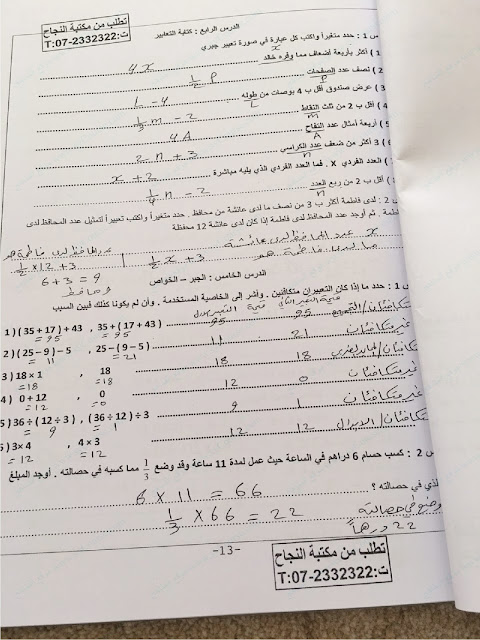 تطلب من مكتبة النجاح
ت:T:07-2332322
الدرس الرابع : كتابة التعابير
س 1 : حدد متغيراً واكتب كل عبارة في صورة تعبير جبري
1 ) أكثر بأربعة أضعاف مما وفره خالد x
4x
2 ) نصف عدد الصفحات P
1/2 P
3 ) عرض صندوق أقل ب 4 بوصات من طوله L
L - 4
4 ) أقل ب 2 من ثلث النقاط m
1/3 m - 2
5 ) أربعة أمثال عدد التفاح A
4A
6 ) 3 أكثر من ضعف عدد الكراسي n
2n + 3
العدد الفردي x . فما العدد الفردي الذي يليه مباشرة
x + 2
أقل ب 2 من ربع العدد n
1/4 n - 2
س 2 : لدى فاطمة أكثر ب 3 من نصف ما لدى عائشة من محافظ . حدد متغيراً واكتب تعبيراً لتمثيل عدد المحافظ لدى
فاطمة . ثم أوجد عدد المحافظ لدى فاطمة إذا كان لدى عائشة 12 محفظة
x عدد المحافظ لدى عائشة
عدد المحافظ لدى فاطمة هو
ما لدى فاطمة هو 1/2 x + 3
1/2 x 12 + 3
6 + 3 = 9
محافظ
الدرس الخامس : الجبر - الخواص
س 1 : حدد ما إذا كان التعبيران متكافئين . وأشر إلى الخاصية المستخدمة . وأن لم يكونا كذلك فبين السبب
قيمة التعبير الثاني قيمة التعبير الأول
1 ) ( 35 + 17 ) + 43 , 35 + ( 17 + 43 ) 95 95 متكافئان / التجميع
= 95 = 95
2 ) ( 25 – 9 ) – 5 , 25 – ( 9 – 5 ) 21 11 غير متكافئان
= 11 = 21
3 ) 18 x 1 , 18 18 18 متكافئان / المحايد الضربي
=18 =18
4 ) 0 + 12 , 0 0 12 غير متكافئان
= 12 = 0
5 ) 36 ÷ ( 12 ÷ 3 ) , ( 36 ÷ 12 ) ÷ 3 1 9 غير متكافئان
= 9 = 1
3 x 4 , 4 x 3 12 12 متكافئان / الابدال
= 12 = 12
س 2 : كسب حسام 6 دراهم في الساعة حيث عمل لمدة 11 ساعة وقد وضع 1/3 مما كسبه في حصالته . أوجد المبلغ
الذي في حصالته ؟
6 x 11 = 66
1/3 x 66 = 22
وضع في حصالته
22 درهماً
-13-
تطلب من مكتبة النجاح
ت:T:07-2332322